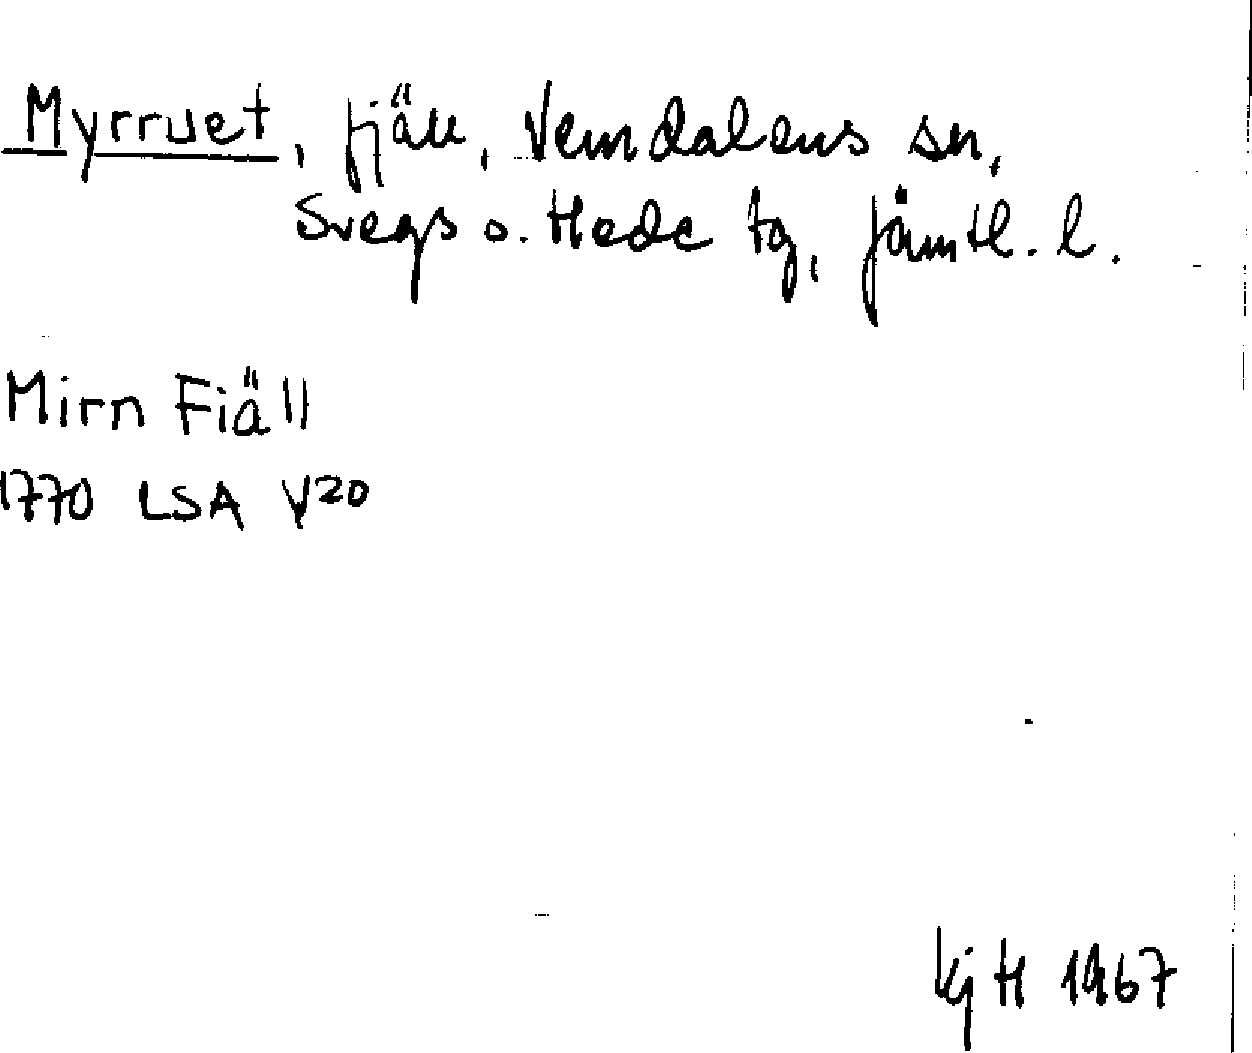 Myrruet, fjäll, Vemdalens sn,
Svegs o. Hede tg, Jämtl. l.
Mirn Fiäll
1770 LSA V20
Kj H 1967